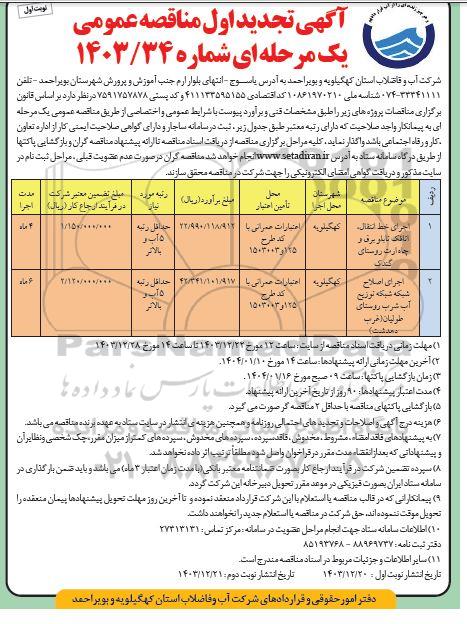 نوبت اول
آگهی تجدید اول مناقصه عمومی
یک مرحله ای شماره ۱۴۰۳/۳۴
شرکت آب و فاضلاب استان کهگیلویه و بویراحمد به آدرس یاسوج - انتهای بلوار ارم جنب آموزش و پرورش شهرستان بویراحمد - تلفن
۰۷۴-۳۳۳۴۱۱۱۱ شناسه ملی ۱۰۸۶۱۹۷۰۲۱۰ کد اقتصادی ۴۱۱۱۳۳۵۹۵۱۵۵ و کد پستی ۷۵۹۱۷۵۷۸۷۸ در نظر دارد بر اساس قانون
برگزاری مناقصات پروژه های زیر را طبق مشخصات فنی و برآورد پیوست با شرایط عمومی و اختصاصی از طریق مناقصه عمومی یک مرحله
ای به پیمانکار واجد صلاحیت که دارای رتبه معتبر طبق جدول زیر، ثبت در سامانه ساجار و دارای گواهی صلاحیت ایمنی کار از اداره تعاون
،کار و رفاه اجتماعی باشد واگذار نماید، کلیه مراحل برگزاری مناقصه از دریافت اسناد مناقصه تا ارائه پیشنهاد مناقصه گران و بازگشایی پاکتها
از طریق درگاه سامانه ستاد به آدرس www.setadiran.ir انجام خواهد شد مناقصه گران در صورت عدم عضویت قبلی ، مراحل ثبت نام در
سایت مذکور و دریافت گواهی امضای الکترونیکی را جهت شرکت در مناقصه محقق سازند.
ردیف | موضوع مناقصه | شهرستان محل اجرا | محل تأمین اعتبار | مبلغ برآورد(ریال) | رتبه مورد نیاز | مبلغ تضمین معتبر شرکت در فرآیند ارجاع کار (ریال) | مدت اجرا
۱ | اجرای خط انتقال، اتاقک تابلو برق و چاه ارت روستای کندک | کهگیلویه | اعتبارات عمرانی با کد طرح ۱۵۰۳۰۰۳و۱۲۵ | ۲۲/۹۹۰/۱۱۸/۹۱۲ | حداقل رتبه ۵ آب و بالاتر | ۱/۱۵۰/۰۰۰/۰۰۰ | ۴ ماه
۲ | اجرای اصلاح شبکه شبکه توزیع آب شرب روستای طولیان(غرب دهدشت) | کهگیلویه | اعتبارات عمرانی با کد طرح ۱۵۰۳۰۰۳و۱۲۵ | ۴۲/۳۴۱/۱۰۱/۹۱۷ | حداقل رتبه ۵ آب و بالاتر | ۲/۱۵۰/۰۰۰/۰۰۰ | ۶ ماه
۱) مهلت زمانی دریافت اسناد مناقصه از سایت: ساعت ۱۲ مورخ ۱۴۰۳/۱۲/۲۳ تا ساعت ۱۴ مورخ ۱۴۰۳/۱۲/۲۸
۲) آخرین مهلت زمانی ارائه پیشنهادها: ساعت ۱۴ مورخ ۱۴۰۴/۰۱/۱۰
۳) زمان بازگشایی پاکتها: ساعت ۰۹ صبح مورخ ۱۴۰۴/۰۱/۱۶
۴) مدت اعتبار پیشنهادها: ۹۰ روز از تاریخ آخرین ارائه پیشنهاد.
۵) بازگشایی پاکتهای مناقصه با حداقل ۲ مناقصه گر صورت می گیرد.
۶) هزینه درج آگهی و اصلاحات و تجدید های احتمالی روزنامه و همچنین هزینه ی انتشار در سایت ستاد به عهده برنده مناقصه می باشد.
۷) به پیشنهادهای فاقد امضاء، مشروط، مخدوش، فاقد سپرده، سپرده های مخدوش، سپرده های کمتر از میزان مقرر، چک شخصی و نظایر آن
و پیشنهاداتی که بعد از انقضاء مدت مقرر در فراخوان واصل شود مطلقاً ترتیب اثر داده نخواهد شد.
۸) سپرده تضمین شرکت در فرآیند ارجاع کار بصورت ضمانتنامه معتبر بانکی (با مدت زمان اعتبار ۳ ماه) می باشد و باید ضمن بارگذاری در
سامانه ستاد ایران بصورت فیزیکی در موعد مقرر تحویل دبیرخانه این شرکت گردد.
۹) پیمانکارانی که در قالب مناقصه یا استعلام با این شرکت قرارداد منعقد نموده و تا آخرین روز مهلت تحویل پیشنهادها پیمان منعقده را
تحویل موقت ننموده اند، حق شرکت در مناقصه یا استعلام جدید را نخواهند داشت.
۱۰) اطلاعات سامانه ستاد جهت انجام مراحل عضویت در سامانه : مرکز تماس : ۲۷۳۱۳۱۳۱
دفتر ثبت نامه : ۸۸۹۶۹۷۳۷ - ۸۵۱۹۳۷۶۸
۱۱) سایر اطلاعات و جزئیات مربوط در اسناد مناقصه مندرج است.
تاریخ انتشار نوبت اول : ۱۴۰۳/۱۲/۲۰ تاریخ انتشار نوبت دوم : ۱۴۰۳/۱۲/۲۱
دفتر امور حقوقی و قراردادهای شرکت آب و فاضلاب استان کهگیلویه و بویراحمد